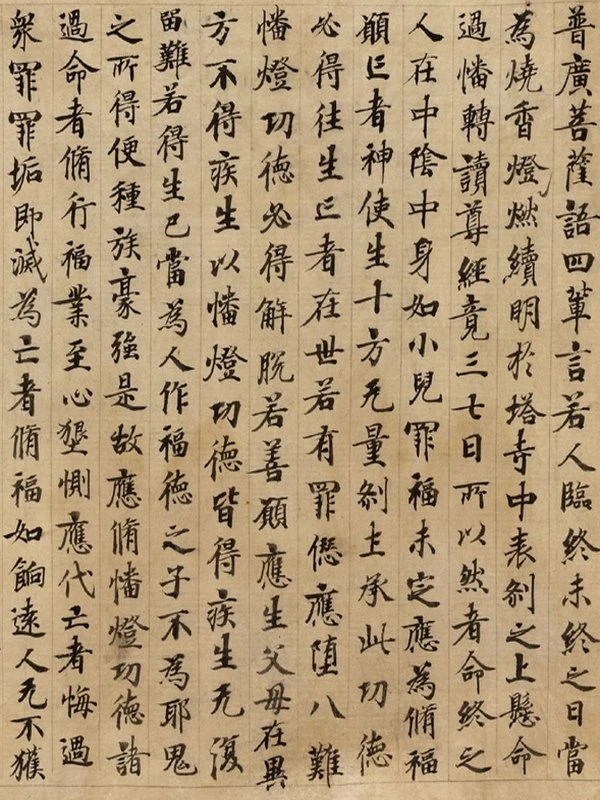 普廣菩薩語四輩言若人臨終未終之日當
為燒香燈燃續明於塔寺中表剎之上懸命
過幡轉讀尊經竟三七日所以然者命終之
人在中陰中身如小兒罪福未定應為脩福
願亡者神使生十方无量剎土承此功德
必得往生亡者在世若有罪僁應墮八難
幡燈功德必得解脫若善願應生父母在異
方不得疾生以幡燈功德皆得疾生无復
留難若得生已當為人作福德之子不為耶鬼
之所得便種族豪強是故應脩幡燈功德諸
過命者脩行福業至心墾惻應代亡者悔過
眾罪罪垢即滅為亡者脩福如餉遠人无不獲